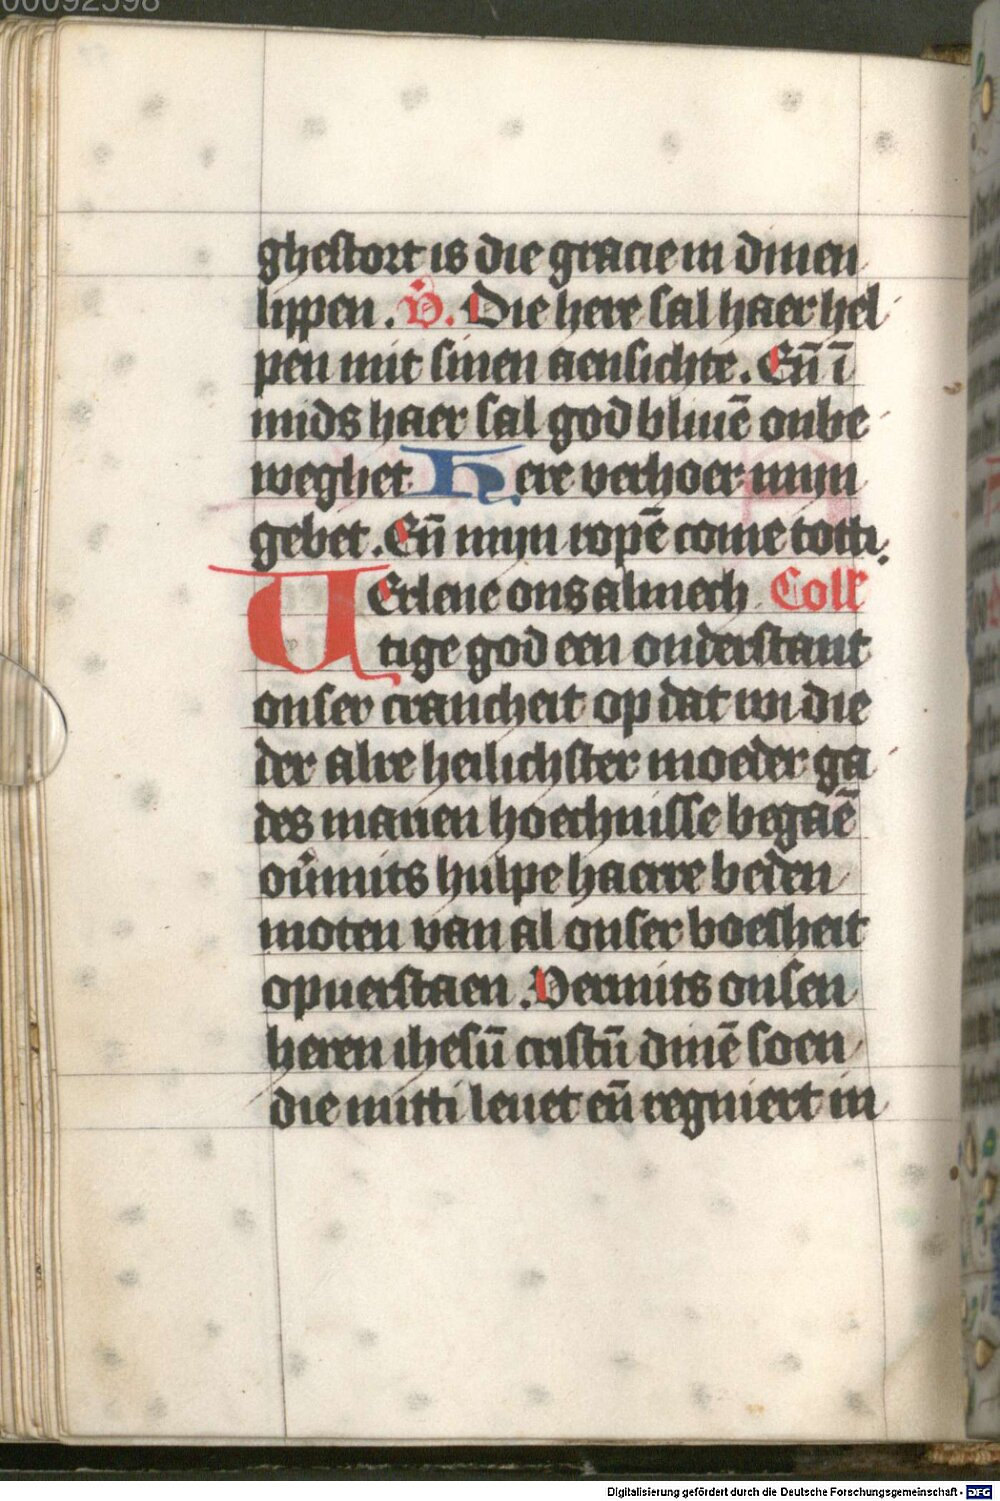 00092598
ghestort is die gracie in dinen
lippen. V̉. Die here sal haer hel
pen mit sinen aensichte. Eñ ī
mids haer sal god bliuē onbe
weghet Here verhoer mijn
gebet. Eñ mijn ropē come totti.
VErlene ons almech Coll'
tige god een onderstant
onser crancheit op dat wi die
der alre heilichster moeder ga
des marien hoechnisse begaē
ou̓mits hulpe haerre beden
moten van al onser boesheit
opuerstaen. Vermits onsen
heren ihesū cristū dinē soen
die mitti leuet eñ regniert in
Digitalisierung gefördert durch die Deutsche Forschungsgemeinschaft - DFG